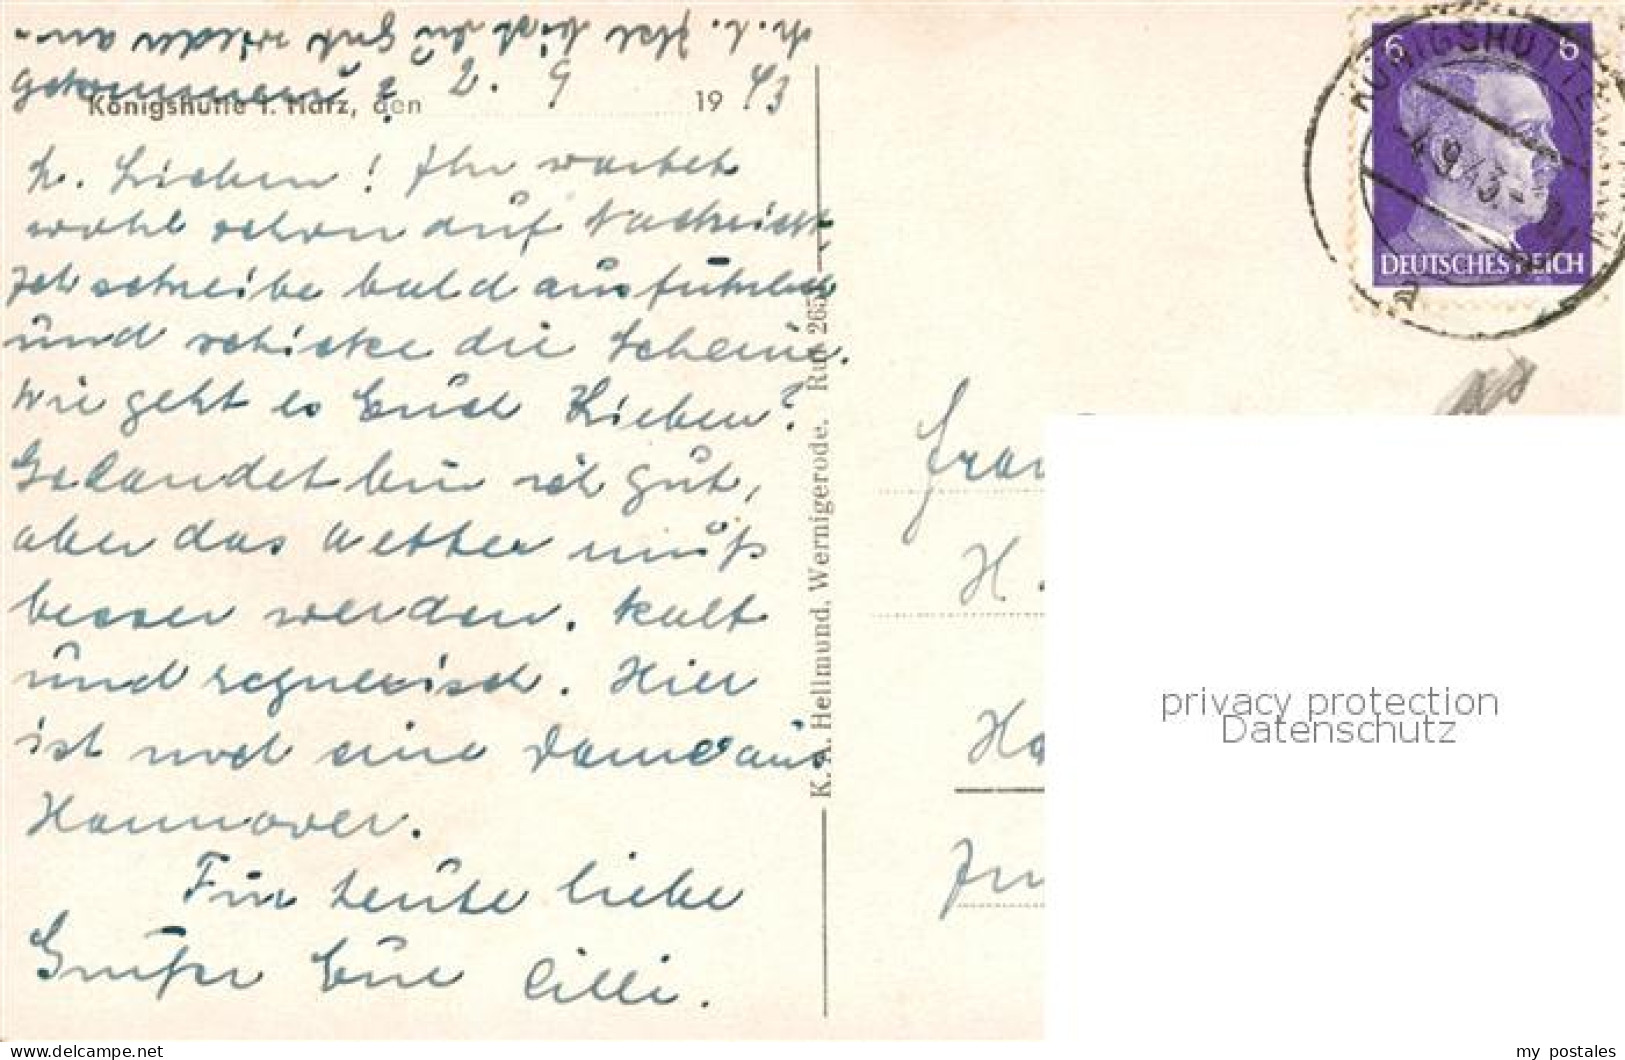 Königshütte i. Harz, den 2. 9. 1943
L. Lieben! Ihr wartet
wohl schon auf Nachricht,
Ich schreibe bald ausführlich
und schicke die Scheine.
Wie geht es Euch Lieben?
Gelandet bin ich gut,
aber das Wetter muß
besser werden. Kalt
und regnerisch. Hier
ist noch eine Dame aus
Hannover.
Für heute liebe
Grüße Eure Cilli.
bist du gut wieder an-
gekommen?
K. A. Hellmund, Wernigerode. Ruf 265
KÖNIGSHÜTTE
-4.9.43.-
a
6 6
DEUTSCHES REICH
Frau
H.
privacy protection
Datenschutz
my postales